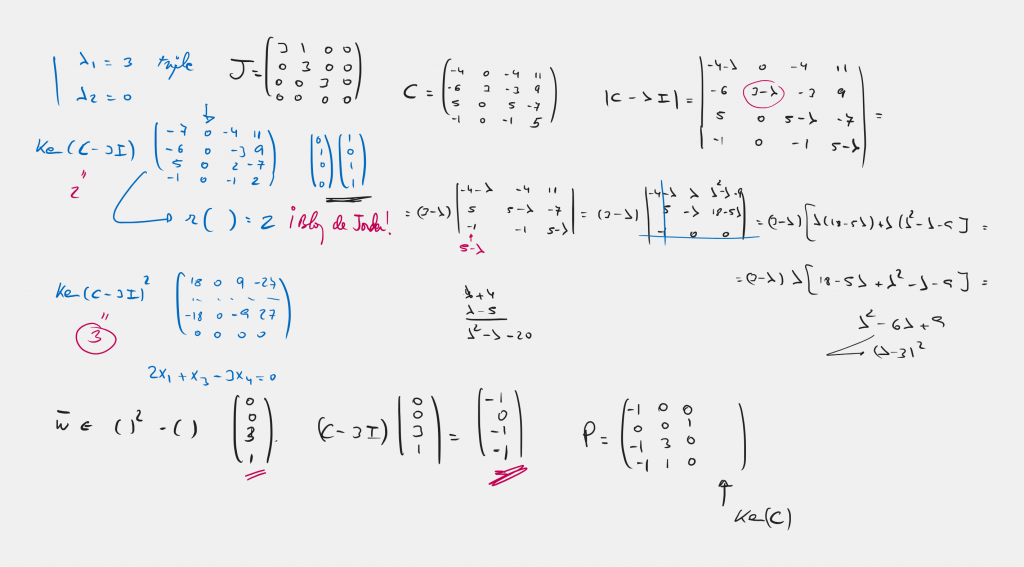 λ₁ = 3 triple
λ₂ = 0
J = ( 3 1 0 0
0 3 0 0
0 0 3 0
0 0 0 0 )
C = ( -4 0 -4 11
-6 3 -3 9
5 0 5 -7
-1 0 -1 5 )
|C - λI| = | -4-λ 0 -4 11
-6 3-λ -3 9
5 0 5-λ -7
-1 0 -1 5-λ | =
Ker(C-3I) ( -7 0 -4 11
-6 0 -3 9
5 0 2 -7
-1 0 -1 2 )
( 0 1 0 0 ) ( 1 1 1 1 )
"
2
r( ) = 2 ¡Bloq de Jordan!
= (3-λ) | -4-λ -4 11
5 5-λ -7
-1 -1 5-λ |
5-λ
= (3-λ) | -4-λ λ λ²-λ-9
5 -λ 18-5λ
-1 0 0 |
= (3-λ) [ λ(18-5λ) + λ(λ²-λ-9 ] =
= (3-λ) λ [ 18-5λ + λ²-λ-9 ] =
λ²-6λ+9
(λ-3)²
λ+4
λ-5
λ²-λ-20
Ker(C-3I)² ( 18 0 9 -27
. . . .
-18 0 -9 27
0 0 0 0 )
"
3
2x₁ + x₃ - 3x₄ = 0
w̄ ∈ ( )² - ( ) ( 0 0 3 1 ).
(C-3I) ( 0 0 3 1 ) = ( -1 0 -1 -1 )
P = ( -1 0 0
0 0 1
-1 3 0
-1 1 0 )
↑
Ker(C)